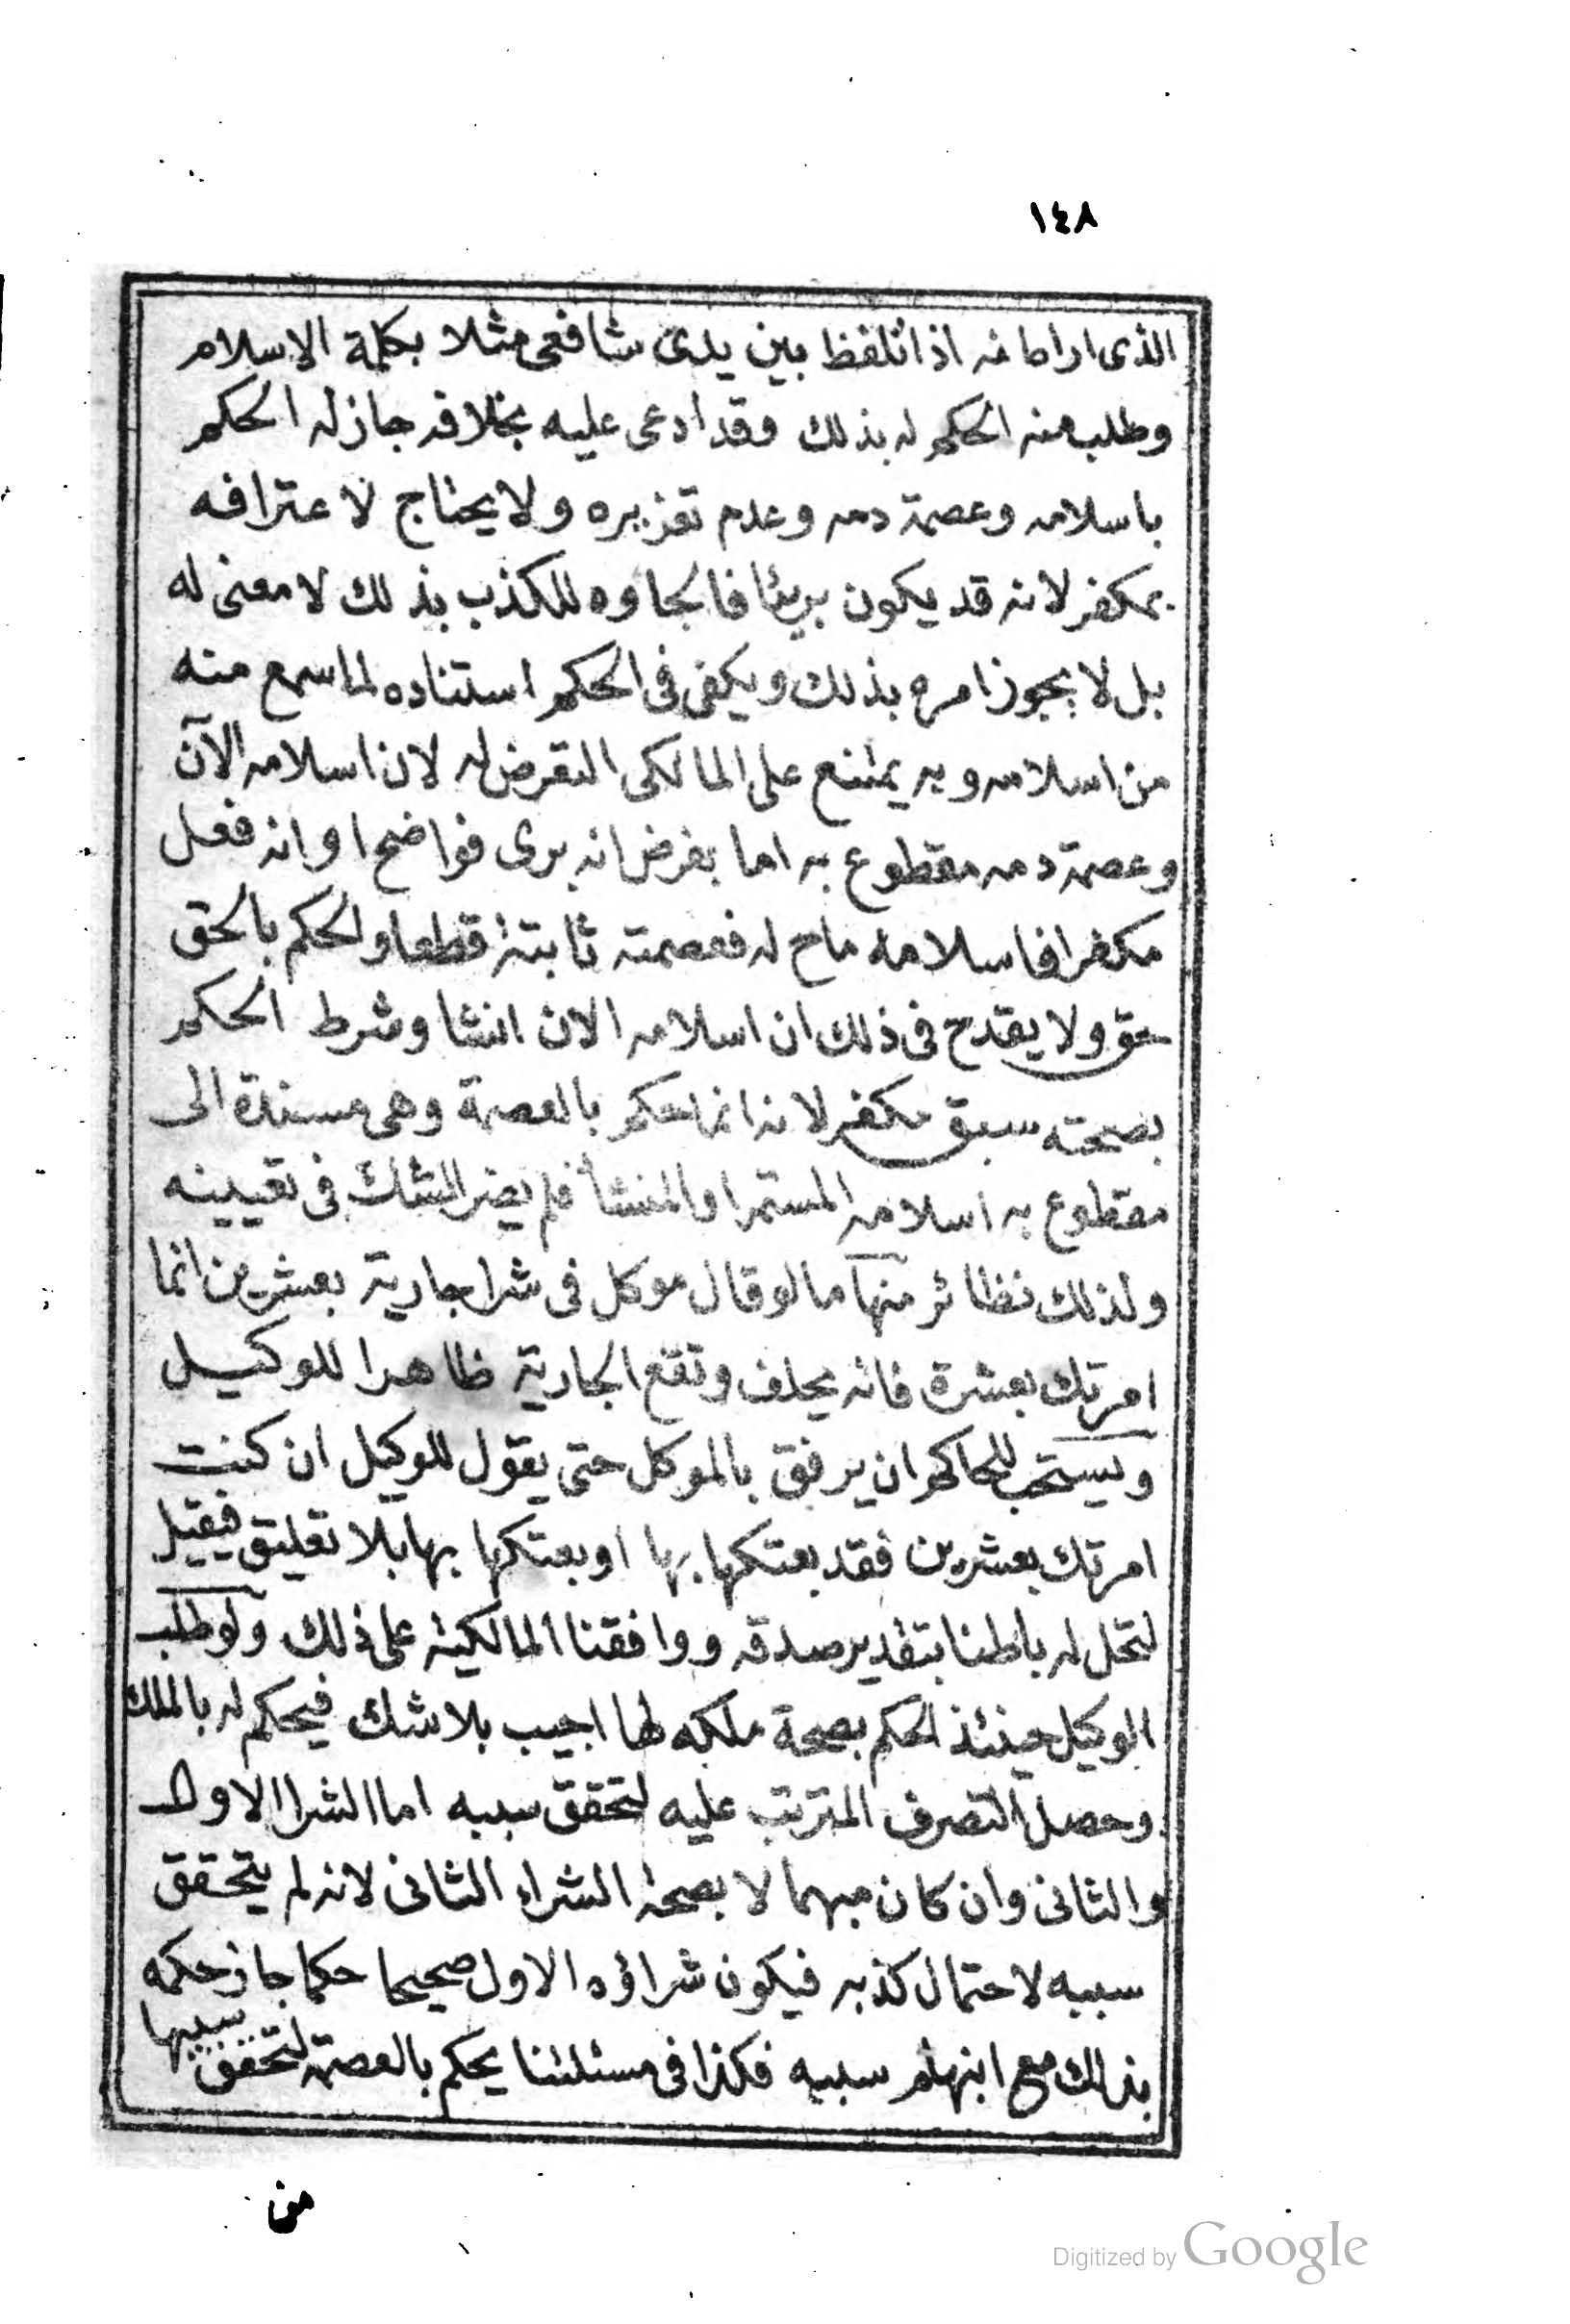 ١٤٨
الذى اراطانه اذا تلفظ بين يدى شافعى مثلا بكلمة الاسلام
وطلب منه الحكم له بذلك وقد ادعى عليه بخلافه جاز له الحكم
باسلامه وعصمة دمه وعدم تعزيره ولا يحتاج لاعترافه
بمكفر لانه قد يكون بريئا فالجاوه للكذب بذلك لا معنى له
بل لا يجوز امره بذلك ويكفى فى الحكم استناده لما سمع منه
من اسلامه وبه يمتنع على المالكى التعرض له لان اسلامه الآن
وعصمة دمه مقطوع به اما بفرض انه برى فواضح او انه فعل
مكفرا فاسلامه ماح له فعصمته ثابتة قطعا والحكم بالحق
حق ولا يقدح فى ذلك ان اسلامه الان انشا وشرط الحكم
بصحته سبق مكفر لانه انما حكم بالعصمة وهى مسندة الى
مقطوع به اسلامه المستمر او المنشأ فلم يضر الشك فى تعيينه
ولذلك نظائر منها ما لو قال موكل فى شرا جارية بعشرين انما
امرتك بعشرة فانه يحلف وتقع الجارية ظاهرا للوكيل
ويستحب للحاكم ان يرفق بالموكل حتى يقول للوكيل ان كنت
امرتك بعشرين فقد بعتكها بها او بعتكها بها بلا تعليق فيقبل
لتحل له باطنا بتقدير صدقه ووافقنا المالكية على ذلك ولو طلب
الوكيل حينئذ الحكم بصحة ملكه لها اجيب بلا شك فيحكم له بالملك
وحصل التصرف المترتب عليه لتحقق سببه اما الشرا الاول
والثانى وان كان مبهما لا بصحة الشراء الثانى لانه لم يتحقق
سببه لاحتمال كذبه فيكون شراؤه الاول صحيحا حكما جاز حكمه
بذلك مع ابنهام سببه فكذا فى مسئلتنا يحكم بالعصمة لتحقق سببها
من
Digitized by Google